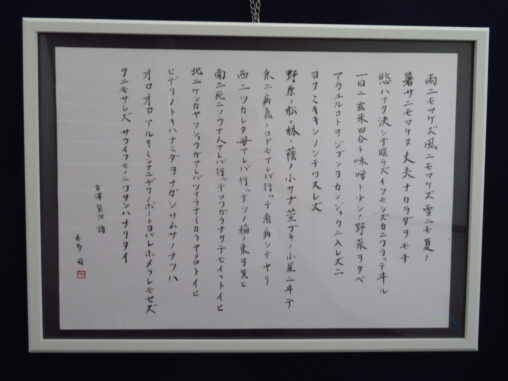 雨ニモマケズ風ニモマケズ雪ニモ夏ノ
暑サニモマケヌ丈夫ナカラダヲモチ
慾ハナク決シテ瞋ラズイツモシズカニワラッテヰル
一日ニ玄米四合ト味噌ト少シノ野菜ヲタベ
アラユルコトヲジブンヲカンジョウニ入レズニ
ヨクミキキシソシテワスレズ
野原ノ松ノ林ノ蔭ノ小サナ萱ブキノ小屋ニヰテ
東ニ病気ノコドモアレバ行ッテ看病シテヤリ
西ニツカレタ母アレバ行ッテソノ稲ノ束ヲ負ヒ
南ニ死ニソウナ人アレバ行ッテコワガラナクテモイヽトイヒ
北ニケンカヤソショウガアレバツマラナイカラヤメロトイヒ
ヒデリノトキハナミダヲナガシサムサノナツハ
オロオロアルキミンナニデクノボートヨバレホメラレモセズ
クニモサレズ サウイフモノニワタシハナリタイ
宮澤賢治 詩